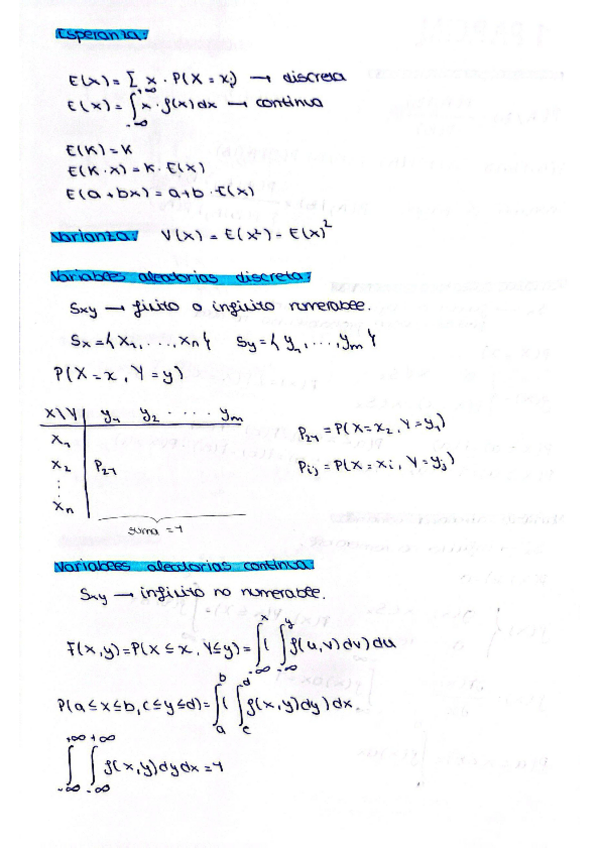 Esperanza:
E(x) = Σ x · P(X = xi) → discreta
E(x) = ∫_{-∞}^{+∞} x · f(x) dx → continua
E(K) = K
E(K · x) = K · E(x)
E(a + bx) = a + b · E(x)
Varianza: V(x) = E(x²) - E(x)²
Variables aleatorias discreta:
Sxy → finito o infinito numerable.
Sx = {x1, ..., xn} Sy = {y1, ..., ym}
P(X = x, Y = y)
X\Y y1 y2 · · · · ym
x1
x2 P21
⋮
xn
suma = 1
P21 = P(X = x2, Y = y1)
Pij = P(X = xi, Y = yj)
Variables aleatorias continua:
Sxy → infinito no numerable.
F(x,y) = P(X ≤ x, Y ≤ y) = ∫_{-∞}^{x} ( ∫_{-∞}^{y} f(u,v) dv) du
P(a ≤ x ≤ b, c ≤ y ≤ d) = ∫_{a}^{b} ( ∫_{c}^{d} f(x,y) dy) dx.
∫_{-∞}^{+∞} ∫_{-∞}^{+∞} f(x,y) dy dx = 1